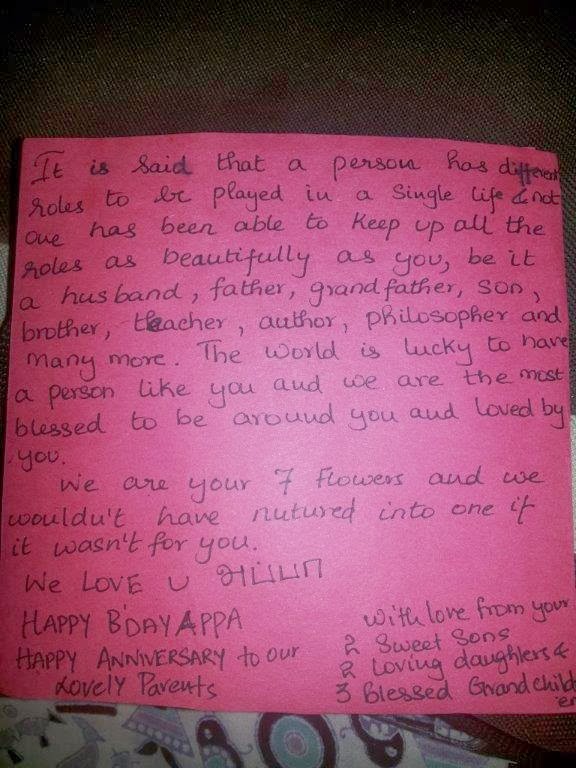 It is said that a person has different
roles to be played in a single life & not
one has been able to keep up all the
roles as beautifully as you, be it
a husband, father, grandfather, son,
brother, teacher, author, philosopher and
many more. The world is lucky to have
a person like you and we are the most
blessed to be around you and loved by
you.
We are your 7 flowers and we
wouldu't have nutured into one if
it wasn't for you.
We LOVE U அப்பா
HAPPY B'DAY APPA
HAPPY ANNIVERSARY to our
Lovely Parents
With love from your
2 Sweet Sons
2 Loving daughters &
3 Blessed Grandchild
en